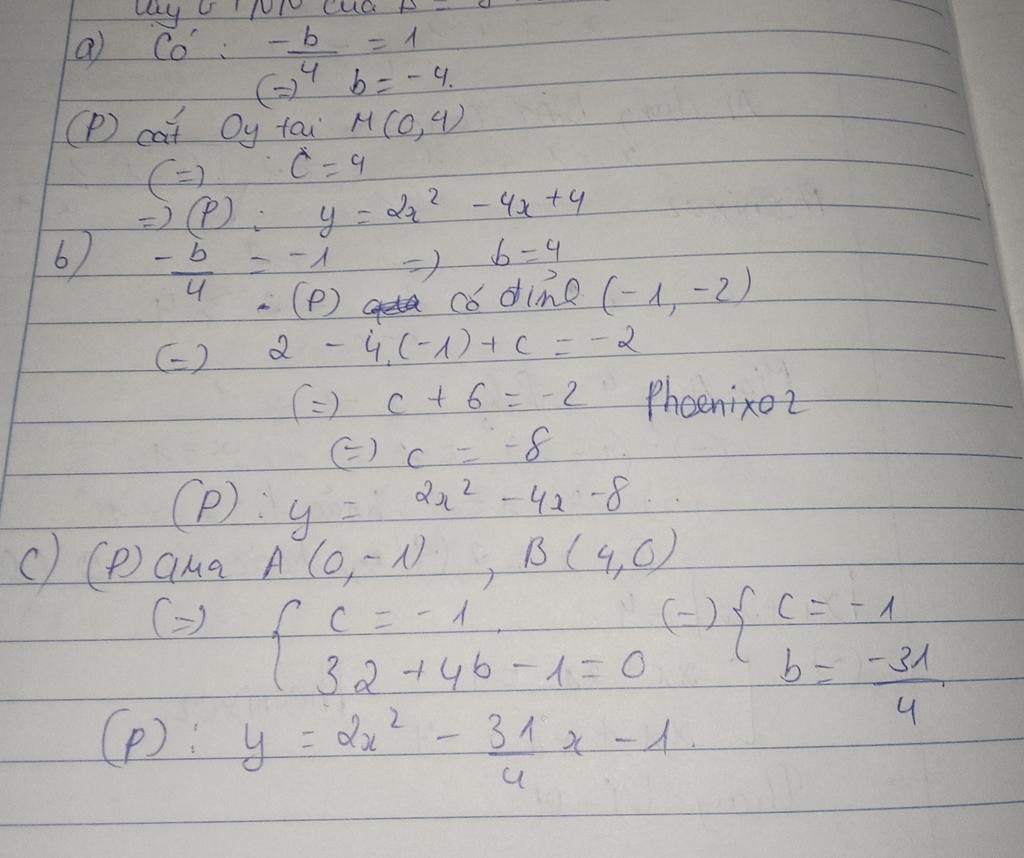 a) Có : -b/4 = 1
(=) b = -4.
(P) cắt Oy tại M(0,4)
(=) C = 4
=) (P) : y = 2x² - 4x + 4
b) -b/4 = -1 =) b = 4
- (P) có đỉnh (-1, -2)
(=) 2 - 4.(-1) + c = -2
(=) c + 6 = -2 Phoenixoz
(=) c = -8
(P) : y = 2x² - 4x - 8 ..
c) (P) qua A (0, -1) , B (4,0)
(=) { c = -1 . (=) { c = -1
32 + 4b - 1 = 0 b = -31/4
(P) : y = 2x² - 31/4 x - 1.